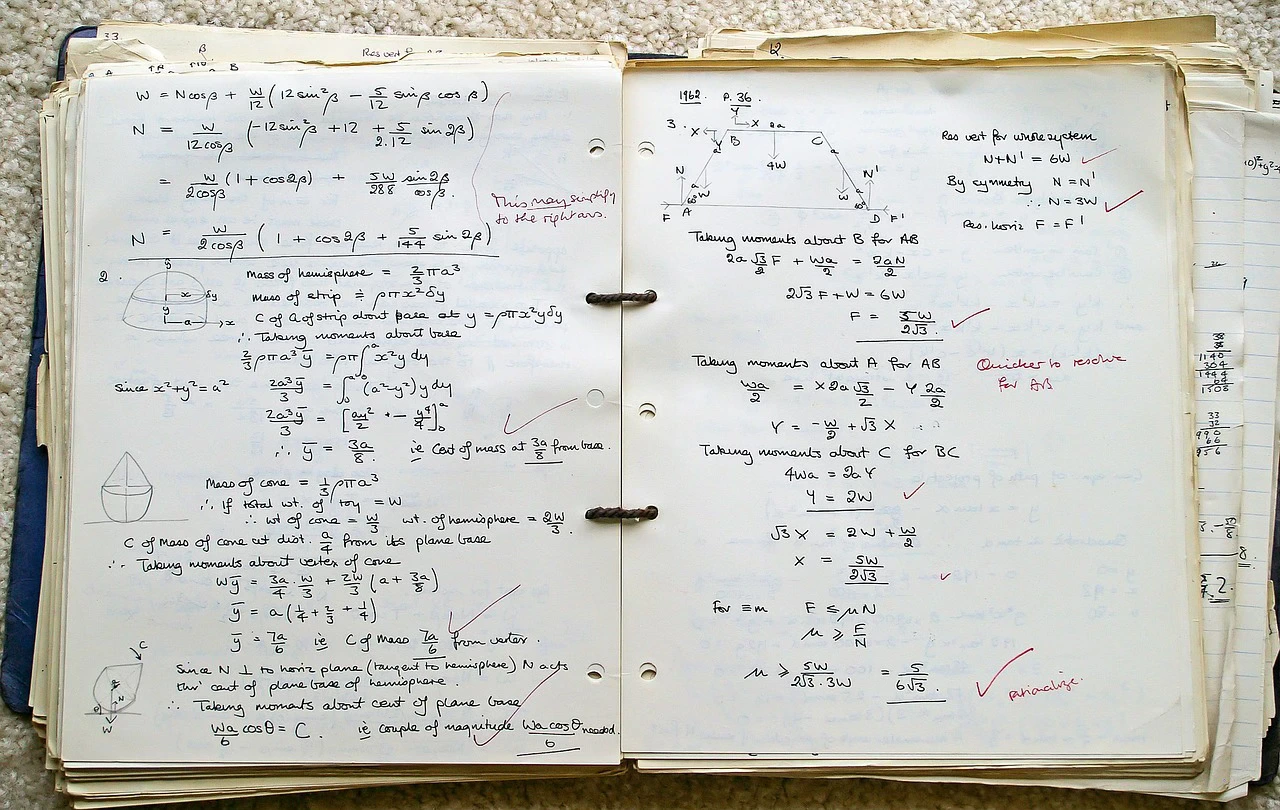 33.
β
Res vert
B
W = Ncosβ + W/12 (12sin²β − 5/12 sinβ cosβ)
N = W/12cosβ (−12sin²β + 12 + 5/2.12 sin2β)
= W/2cosβ (1 + cos2β) + 5W/288 sin2β/cosβ.
This may simplify
to the right ans.
N = W/2cosβ (1 + cos2β + 5/144 sin2β)
2.
y
x
δy
y
a
x
Mass of hemisphere = 2/3 πa³
Mass of strip ≑ ρπx²δy
C of A of strip about base at y = ρπx²yδy
∴ Taking moments about base
2/3 ρπa³ȳ = ρπ∫₀ᵃ x²y dy
since x²+y²=a² 2a³ȳ/3 = ∫₀ᵃ (a²−y²)y dy
2a³ȳ/3 = [ay²/2 − y⁴/4]₀ᵃ
∴ ȳ = 3a/8. ie Cent of mass at 3a/8 from base.
Mass of cone = 1/3 ρπa³
∴ If total wt. of toy = W
∴ wt of cone = W/3 wt. of hemisphere = 2W/3.
C of Mass of cone at dist. a/4 from its plane base
∴ Taking moments about vertex of cone
Wȳ = 3a/4 . W/3 + 2W/3 (a + 3a/8)
ȳ = a(1/4 + 2/3 + 1/4)
ȳ = 7a/6 ie C of Mass 7a/6 from vertex.
C
N
θ
W
Since N ⊥ to horiz plane (tangent to hemisphere) N acts
thro' cent of plane base of hemisphere.
∴ Taking moments about cent of plane base
Wa/6 cosθ = C. ie couple of magnitude Wa cosθ/6 needed.
12.
1962. P. 36.
3.
Y
X X 2a
B C
a a
4W
N N'
a a
W W
60° 60°
F A D F'
Res vert for whole system
N+N' = 6W
By symmetry N = N'
∴ N = 3W
Res. horiz F = F'
Taking moments about B for AB
2a √3/2 F + Wa/2 = 2aN/2
2√3 F + W = 6W
F = 5W/2√3.
Taking moments about A for AB
Quicker to resolve
for AB
Wa/2 = X 2a √3/2 − Y 2a/2
Y = −W/2 + √3 X
Taking moments about C for BC
4Wa = 2aY
Y = 2W
√3 X = 2W + W/2
X = 5W/2√3
For ≡m F ≤ μN
μ ≥ F/N
μ ≥ 5W/2√3.3W = 5/6√3.
rationalize.
38
38
1140
304
1444
64
1508
33
32
990
66
956
8.
2.